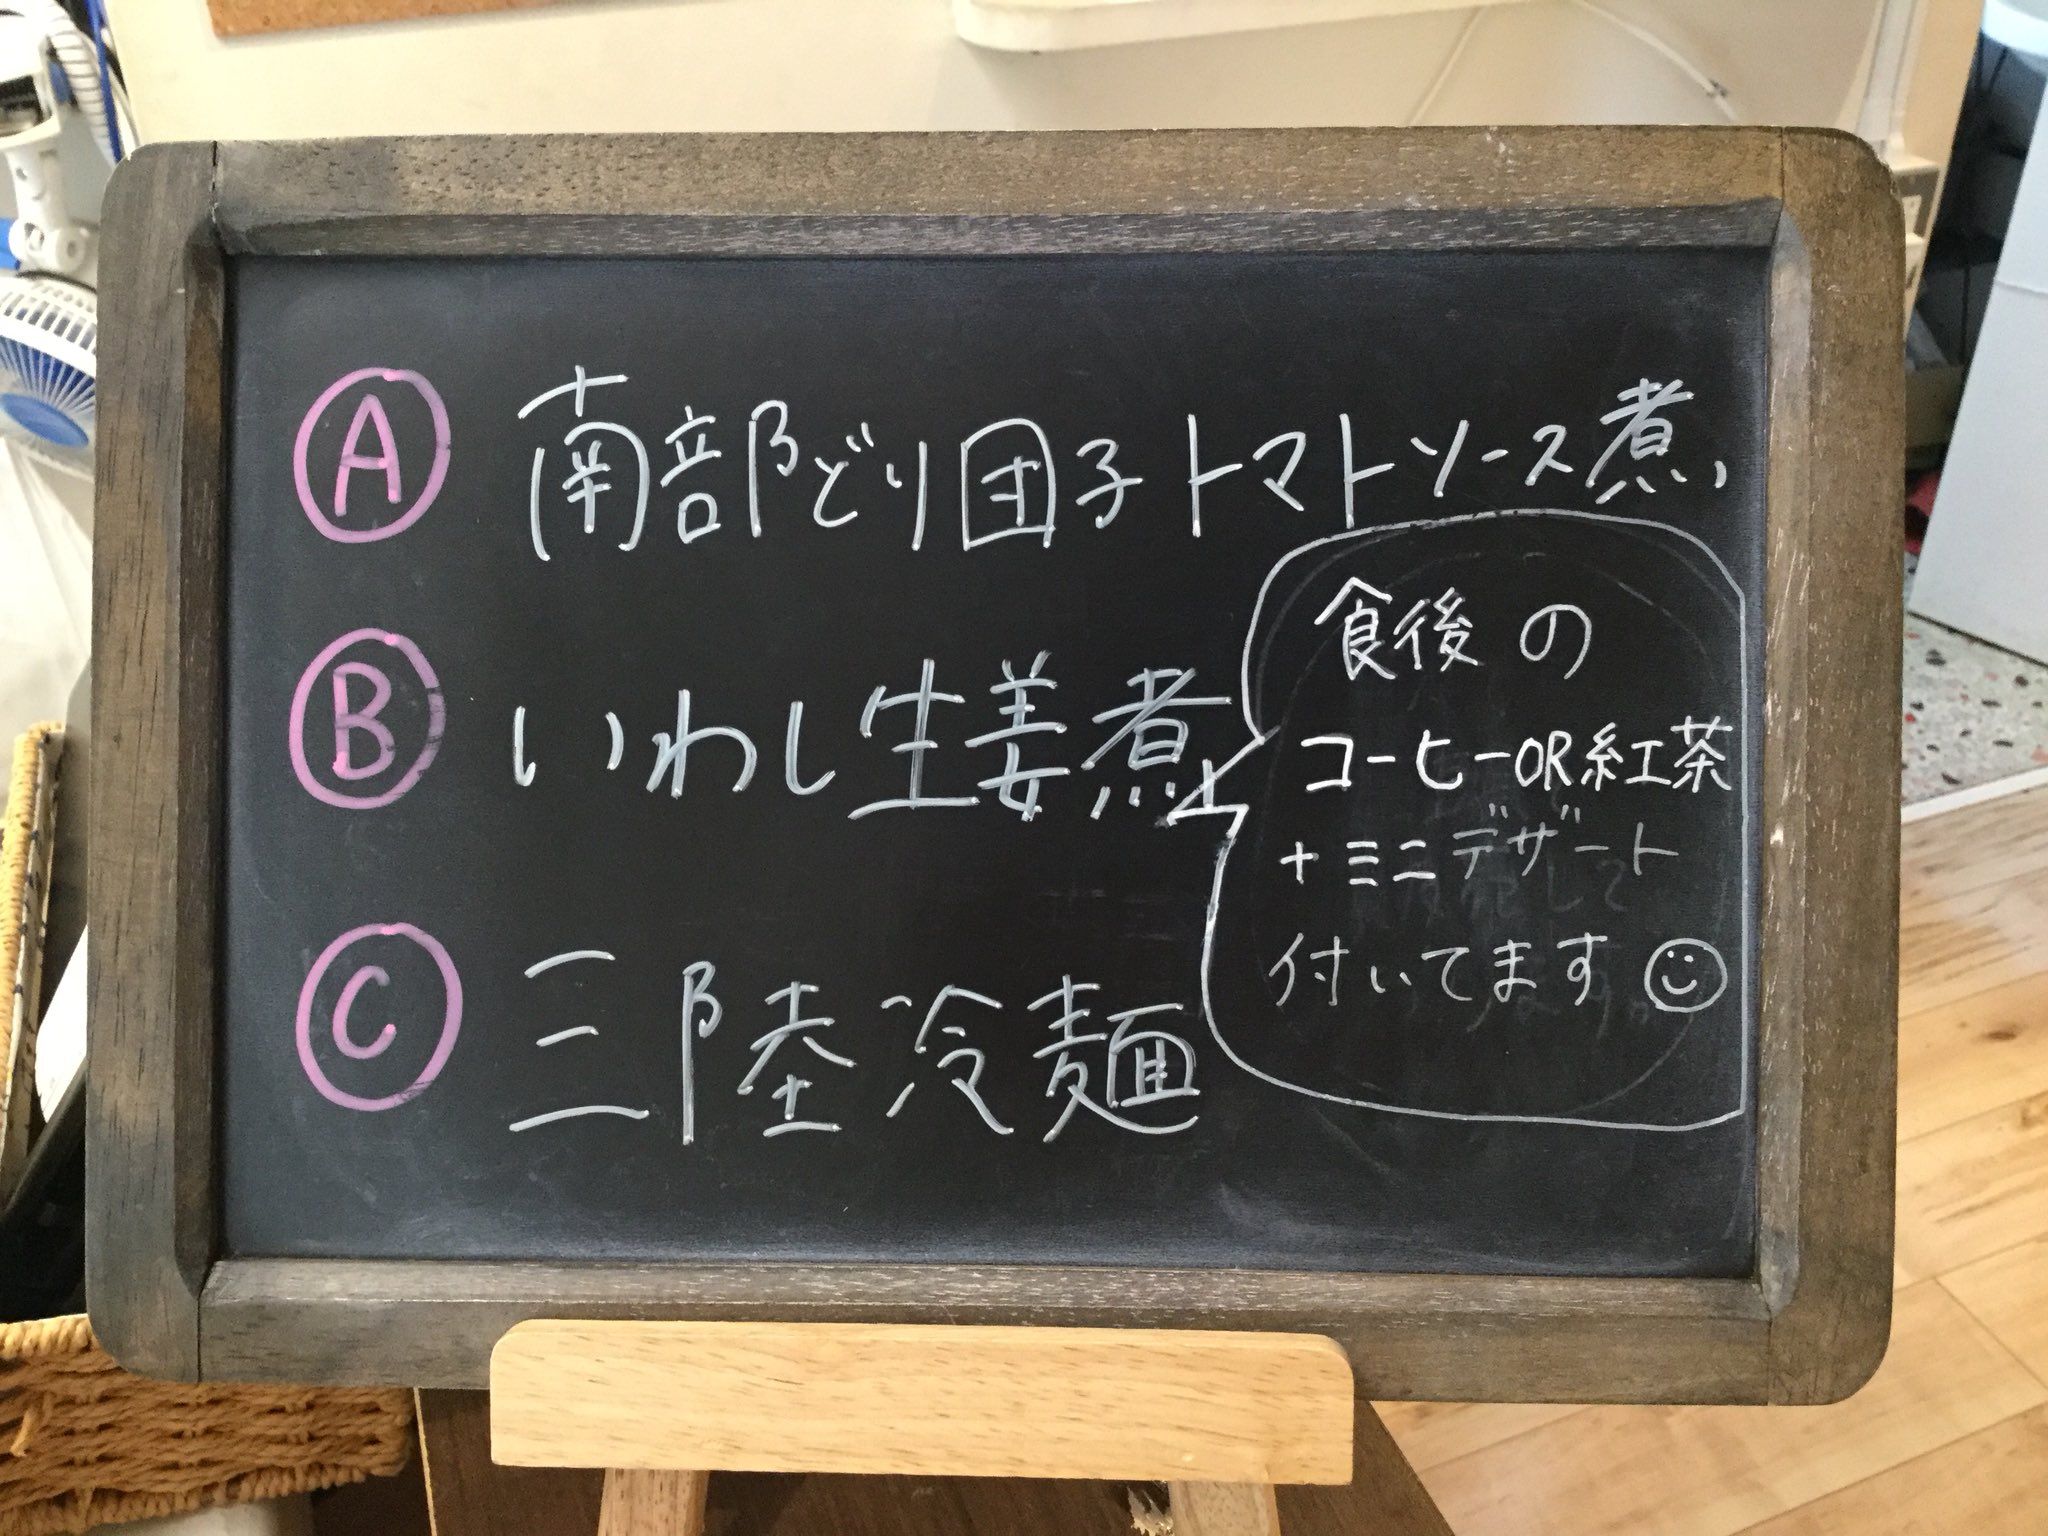 Ⓐ 南部どり団子トマトソース煮
Ⓑ いわし生姜煮
Ⓒ 三陸冷麺
食後の
コーヒーOR紅茶
+ミニデザート
付いてます☺